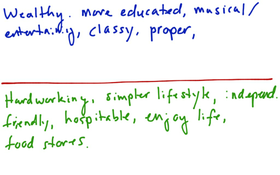 Wealthy. more educated, musical/
entertaining, classy, proper,
Hardworking, simpler lifestyle, independ.
friendly, hospitable, enjoy life,
food stores.